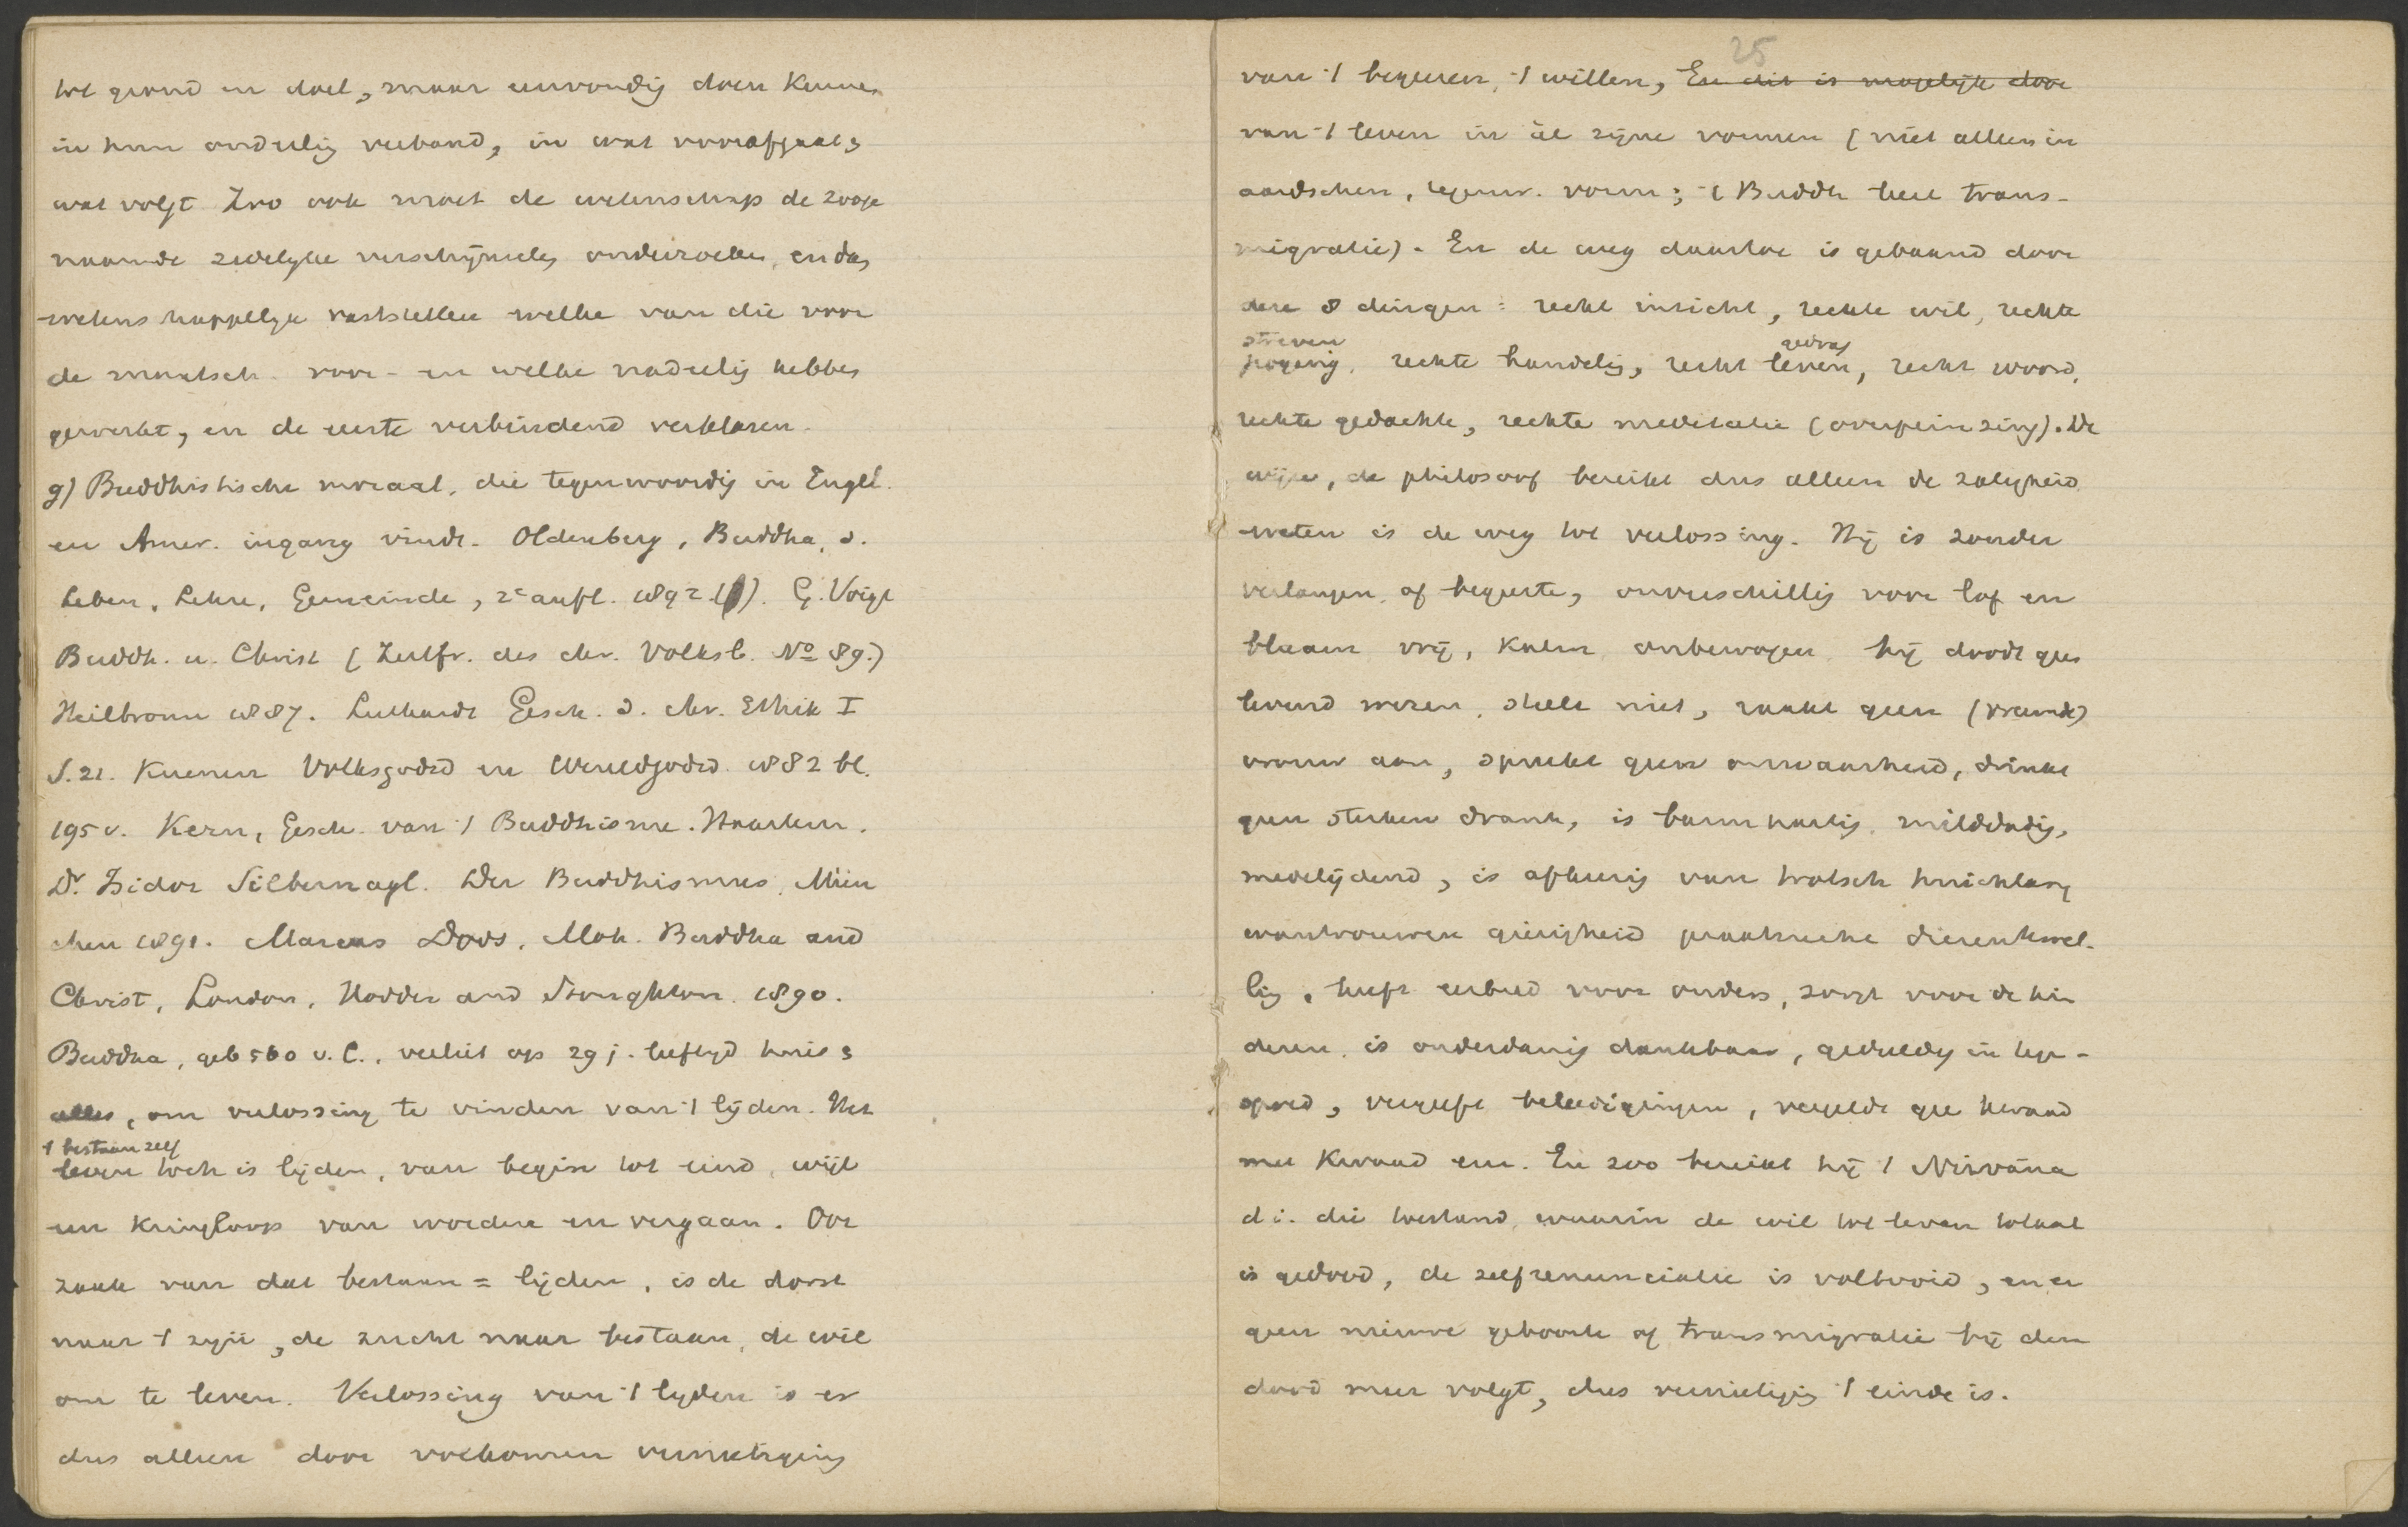 tot grond en doel, maar eenvoudig doen kennen
in hun onderlig verband, in wat voorafgaat &
wat volgt Zoo ook moet de wetenschap de zooge
naamde zedelyke verschijnseles onderzoeken, en das
wetenschappelyk vaststellen welke van die voor
de maatsch. voor- en welke nadeelig hebben
gewerkt, en de eerste verbindend verklaren.
g) Buddhistische moraal, die tegenwoordig in Engel.
en Amer. ingang vindt. Oldenberg, Buddha, s.
Leben, Lehre, Gemeinde, 2e aufl. 1892. G. Voigt
Buddh. u. Christ (Zeitfr. des chr. Volksl. No 89.)
Heilbronn 1887. Luthardt Gesch. d. chr. Ethik I
S. 21. Kuenen Volksgodsd en Wereldgodsd. 1882 bl.
195 v. Kern, Gesch. van 't Buddhisme. Haarlem.
Dr. Isidor Silbernagl. Der Buddhismus, Mün
chen 1891. Marcus Dods, Moh. Buddha and
Christ, London, Hodder and Stoughton. 1890.
Buddha, geb 560 v. C., verliet op 29 j. leeftyd huis &
alles, om verlossing te vinden van 't lijden. Het
't bestaan zelf
leven toch is lijden, van begin tot eind, wijl
een kringloop van worden en vergaan. Oor
zaak van dat bestaan = lijden, is de dorst
naar 't zijn, de zucht naar bestaan, de wil
om te leven. Verlossing van 't lyden is er
dus alleen door volkomen vernietiging
25
van 't begeeren, 't willen, En dit is mogelijk door
van 't leven in al zijne vormen (niet alleen in
aardschen, tegenw. vorm; 't Buddh leert trans-
migratie). En de weg daartoe is gebaand door
deze 8 dingen: recht inzicht, rechte wil, rechte
streven
poging, rechte handelig, recht leven, recht woord,
gedrag
rechte gedachte, rechte meditatie (overpeinzing). De
wijze, de philosoof bereikt dus alleen de zaligheid
weten is de weg tot verlossing. Hij is zonder
verlangen of begeerte, onverschillig voor lof en
blaam vrij, kalm, onbewogen, hij doodt geen
levend wezen, steelt niet, raakt geen (vreemde)
vrouw aan, spreekt geen onwaarheid, drinkt
geen sterken drank, is barmhartig, milddadig,
medelijdend, is afkeerig van trotsch huichlary
wantrouwen gierigheid praalzucht dierenkwel-
lig, heeft eerbied voor ouders, zorgt voor de kin
deren, is onderdanig dankbaar, geduldig in tege-
spoed, vergeeft beleedigingen, vergeldt gee kwaad
met kwaad enz. En zoo bereikt hij 't Nirvâna
d i. die toestand, waarin de wil tot leven totaal
is gedood, de zelfrenunciatie is voltooid, en er
geen nieuwe geboorte of transmigratie bij den
dood meer volgt, dus vernietigig 't einde is.